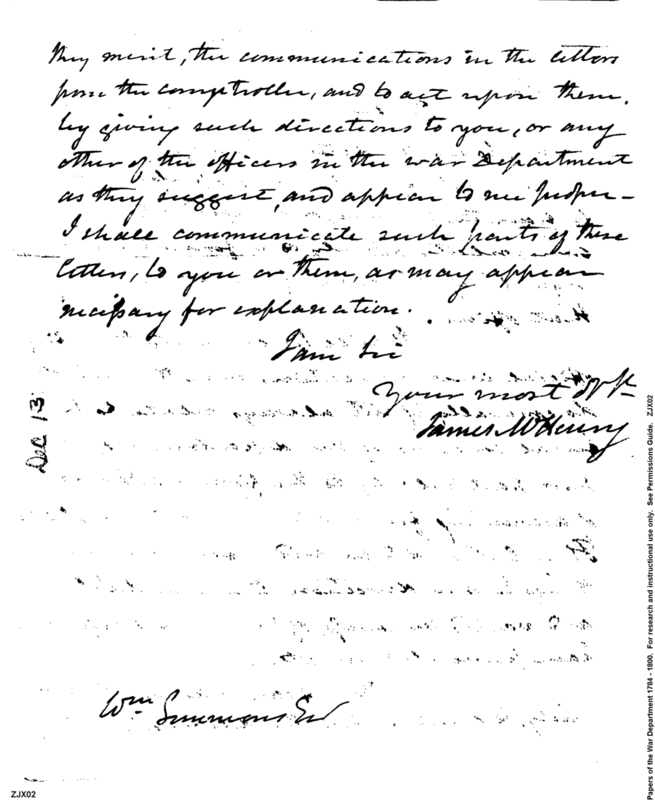 they merit, the communications in the letters
from the comptroller, and to act upon them,
by giving such directions to you, or any
other of the officers in the war Department
as they suggest, and appear to me proper-
I shall communicate such parts of these
letters, to you or them, as may appear
necessary for explanation.
I am Sir
Your most Obt
James McHenry
Dec 13
Wm Simmons Esr
ZJX02
Papers of the War Department 1784 - 1800. For research and instructional use only. See Permissions Guide. ZJX02